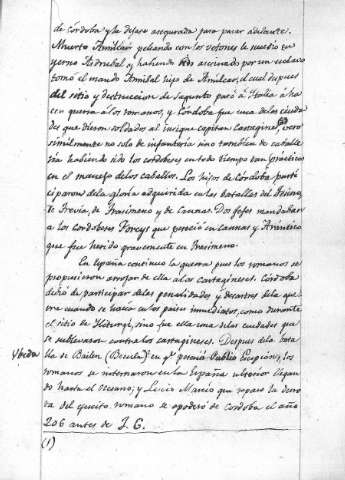 de Córdoba y la dejase asegurada para pasar adelante.
Muerto Amilcar peleando con los vetones le sucedio su
yerno Asdrubal y habiendo sido asesinado por un esclavo
tomó el mando Anibal hijo de Amilcar, el cual despues
del sitio y destruccion de Sagunto pasó á Italia á ha
cer guerra á los romanos, y Córdoba fue una de las ciuda
des que dieron soldados al insigne capitan Cartagines, vero
similmente no solo de infanteria sino tambien de caballe
ria habiendo sido los cordobeses en todo tiempo tan prácticos
en el manejo de los caballos. Los hijos de Córdoba parti
ciparon de la gloria adquirida en las batallas del Tesino,
de Trevia, de Trasimeno y de Cannas. Dos jefes mandaban
a los Cordobeses Forcys que pereció en Cannas y Arauricio
que fue herido gravemente en Trasimeno.
En España continuo la guerra pues los romanos se
propusieron arrojar de ella a los cartagineses. Córdoba
dejó de participar de las penalidades y desastres de la gue
rra cuando se hacia en los paises inmediatos, como durante
el sitio de Iliturgi, sino fue ella una de las ciudades que
se sublevaron contra los cartagineses. Despues de la bata
Ubeda lla de Bailen (Becula) en qe. Publio Escipion, los
romanos se internaron en la España ulterior llegan
do hasta el oceano; y Lucio Marcio que reparó la derro
ta del ejercito romano se apoderó de Cordoba el año
206 antes de J. C.
(1)